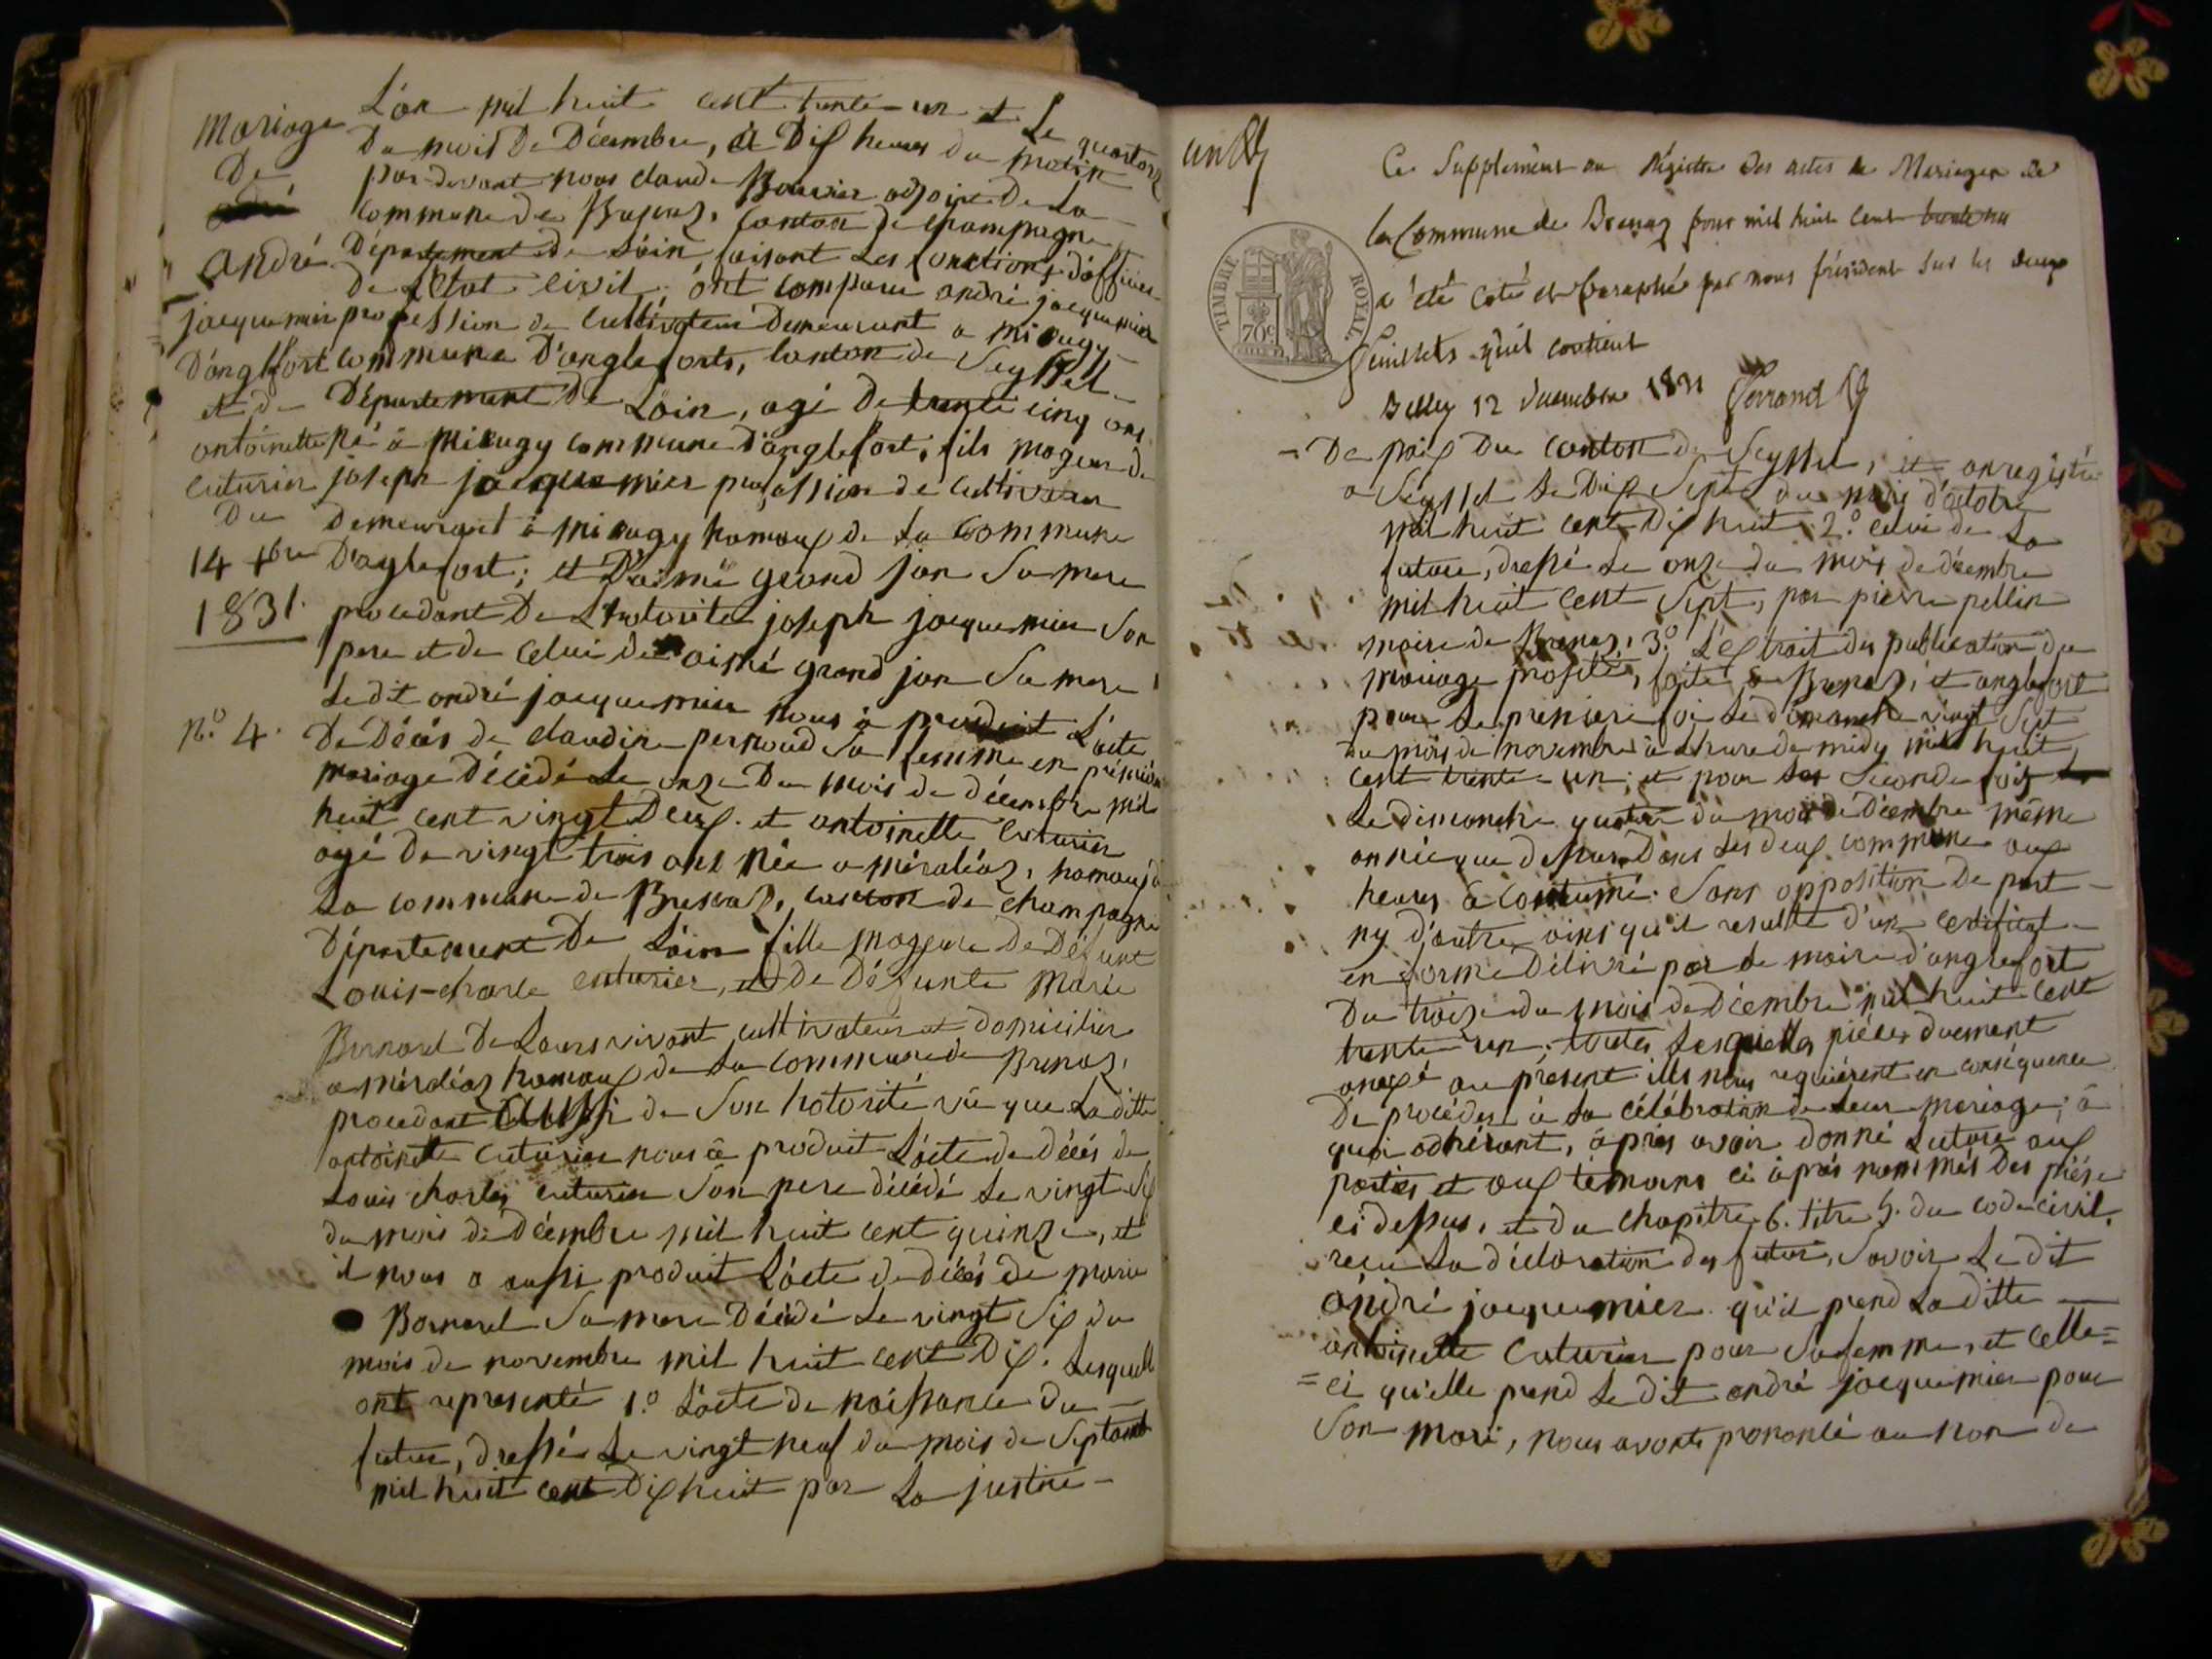 Mariage
De
André
jacquemier
D'anglefort
et de
antoinette
cuturier
Du
14 xbre
1831.
n.º 4.
L'an mil huit cent trente-un et Le quatorze
Du mois De Décembre, à Dix heures du matin
par-devant nous claude Bouvier adjoint De La
commune de Brenaz, canton de champagne
Département de L'ain faisant Les fonctions d'officier
De L'Etat civil. ont comparu andré jacquemier
profession de cultivateur Demeurant a miougy
commune D'anglefort, canton de Seyssel
Département De L'ain, agé De trente cinq ans
né à Mieugy commune d'anglefort, fils mageur de
joseph jacquemier profession de cultivateur
Demeurant à mieugy hamaux de La commune
D'aglefort; et D'aimé grand jan Sa mere
procedant De L'hotorité joseph jacquemier Son
pere et de celui de aimé grand jan Sa mere
Le dit andré jacquemier nous à produit L'acte
De Décés de claudine pernoud Sa femme en prémier
mariage Décédé Le onze Du mois de décembre mil
huit cent vingt Deux. et antoinette cuturier
agé De vingt trois ans Née a méraléaz, hamaux de
La commune de Brenaz, canton de champagne
Département De L'ain fille mageure De Défunt
Louis-charle cuturier, et De Défunte Marie
Bernard De Leurs vivant cultivateur et domicilier
a méraléaz hamaux de La commune de Brenaz,
procedant aussi de Son hotorité vû que La ditte
antoinette cuturier nous à produit L'acte de décés de
Louis charles cuturier Son pere décédé Le vingt Six
du mois de Décembre mil huit cent quinze, et
il nous a aussi produit L'acte de décés de marie
Bernard Sa mere Décédé Le vingt Six du
mois de novembre mil huit cent Dix. Lesquell
ont representé 1.º L'acte de naissance du
futur, dressé Le vingt neuf du mois de Septamb
mil huit cent Dix huit par La justice
un
Ce Supplément au Régistre des actes de Mariages de
la Commune de Brenaz pour mil huit Cent trente un
a été Coté et Paraphé par nous président Sur les deux
feuillets qu'il contient
Belley 12 Décembre 1831 Ferrand
TIMBRE ROYAL
70c
De paix Du canton de Seyssel, et anregistré
a Seyssel Le Dix Sept du mois d'octobre
mil huit cent Dix huit 2.º celui de La
future, dressé Le onze du mois de décembre
mil huit cent Sept, par pierre pellin
maire de Brenaz, 3.º L'extrait des publication du
mariage projeté, faite à Brenaz, et anglefort
pour La premiere foi Le dimanche vingt Sept
du mois de novembre à L'heure de midy mil huit
cent trente-un, et pour La Seconde fois
Le dimanche quatre du mois de Décembre même
année que dessus Dans Les deux commune aux
heures à coutumé. Sans opposition De part
ny d'autre ainsi qu'il resulte d'un certificat
en forme Délivré par Le maire d'anglefort
Du treize du mois de Décembre mil huit cent
trente-un, toutes Lesquelles pièces duement
anexé au present ills nous requiérent en conséquence
De procéder à La célébration de Leur mariage; à
quoi adhérant, àprés avoir donné Lecture aux
parties et aux témoins ci àprés nommés Des pièse
ci dessus, et du chapitre 6. titre 5. du code civil,
reçu La déclaration des futur, Savoir Le dit
andré jacquemier qu'il prend La ditte
antoinette Cuturier pour Sa femme, et celle=
=ci qu'elle prend Le dit andré jacquemier pour
Son mari, nous avonts prononcé au nom de